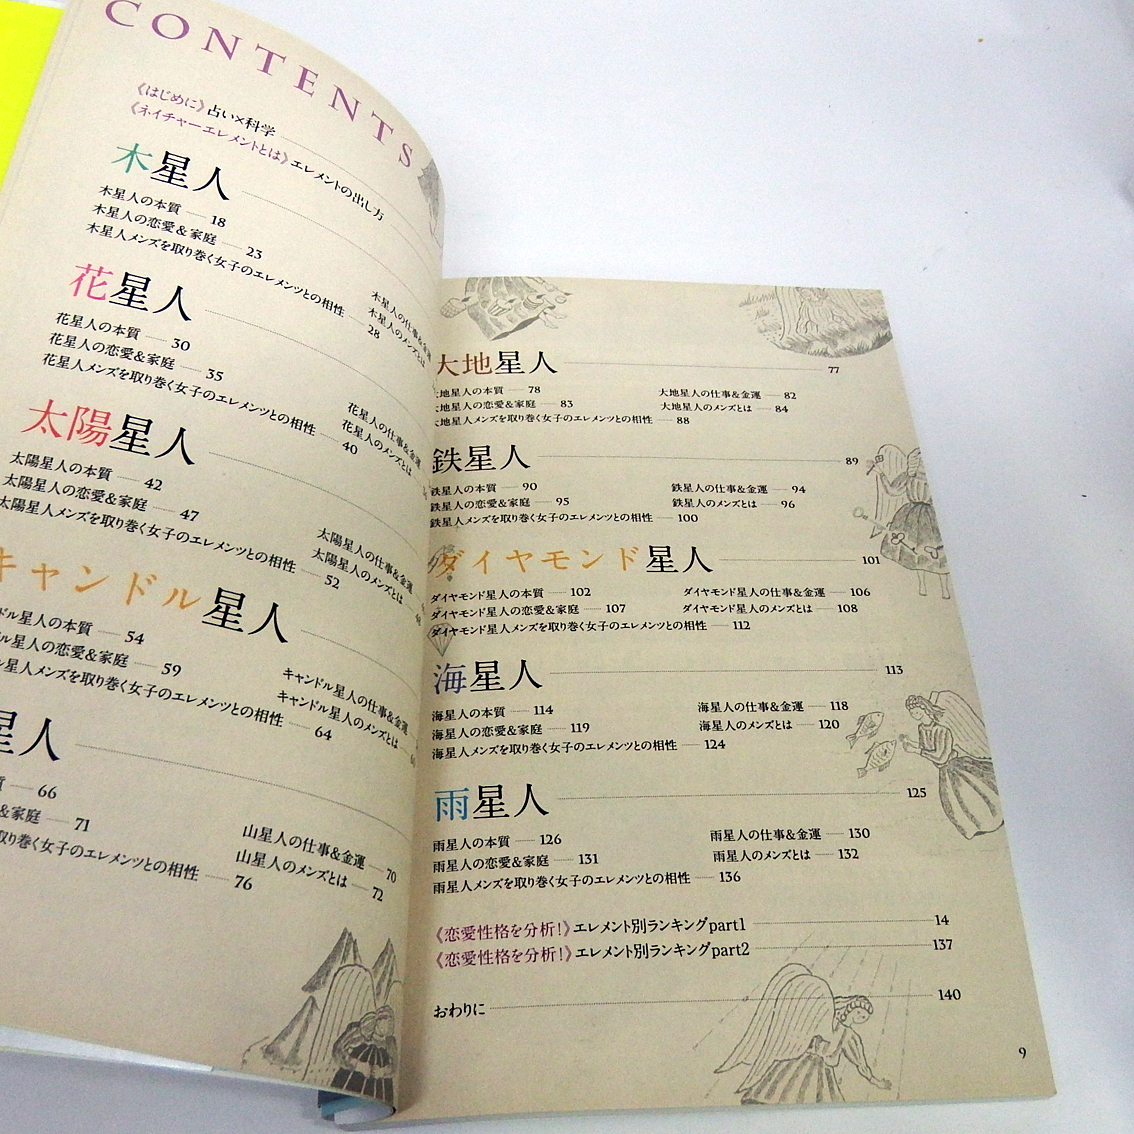 CONTENTS
《はじめに》占い×科学
《ネイチャーエレメントとは》エレメントの出し方
木星人
木星人の本質 18
木星人の恋愛&家庭 23
木星人の仕事&金運
木星人のメンズとは
木星人メンズを取り巻く女子のエレメンツとの相性 28
花星人
花星人の本質 30
花星人の恋愛&家庭 35
花星人の仕事&金運
花星人のメンズとは
花星人メンズを取り巻く女子のエレメンツとの相性 40
太陽星人
太陽星人の本質 42
太陽星人の恋愛&家庭 47
太陽星人の仕事&金運
太陽星人のメンズとは
太陽星人メンズを取り巻く女子のエレメンツとの相性 52
キャンドル星人
ドル星人の本質 54
ル星人の恋愛&家庭 59
キャンドル星人の仕事&金運
キャンドル星人のメンズとは
星人メンズを取り巻く女子のエレメンツとの相性 64
星人
質 66
&家庭 71
山星人の仕事&金運 70
山星人のメンズとは 72
取り巻く女子のエレメンツとの相性 76
大地星人 77
大地星人の本質 78
大地星人の仕事&金運 82
大地星人の恋愛&家庭 83
大地星人のメンズとは 84
大地星人メンズを取り巻く女子のエレメンツとの相性 88
鉄星人 89
鉄星人の本質 90
鉄星人の仕事&金運 94
鉄星人の恋愛&家庭 95
鉄星人のメンズとは 96
鉄星人メンズを取り巻く女子のエレメンツとの相性 100
ダイヤモンド星人 101
ダイヤモンド星人の本質 102
ダイヤモンド星人の仕事&金運 106
ダイヤモンド星人の恋愛&家庭 107
ダイヤモンド星人のメンズとは 108
ダイヤモンド星人メンズを取り巻く女子のエレメンツとの相性 112
海星人 113
海星人の本質 114
海星人の仕事&金運 118
海星人の恋愛&家庭 119
海星人のメンズとは 120
海星人メンズを取り巻く女子のエレメンツとの相性 124
雨星人 125
雨星人の本質 126
雨星人の仕事&金運 130
雨星人の恋愛&家庭 131
雨星人のメンズとは 132
雨星人メンズを取り巻く女子のエレメンツとの相性 136
《恋愛性格を分析!》エレメント別ランキングpart1 14
《恋愛性格を分析!》エレメント別ランキングpart2 137
おわりに 140
9